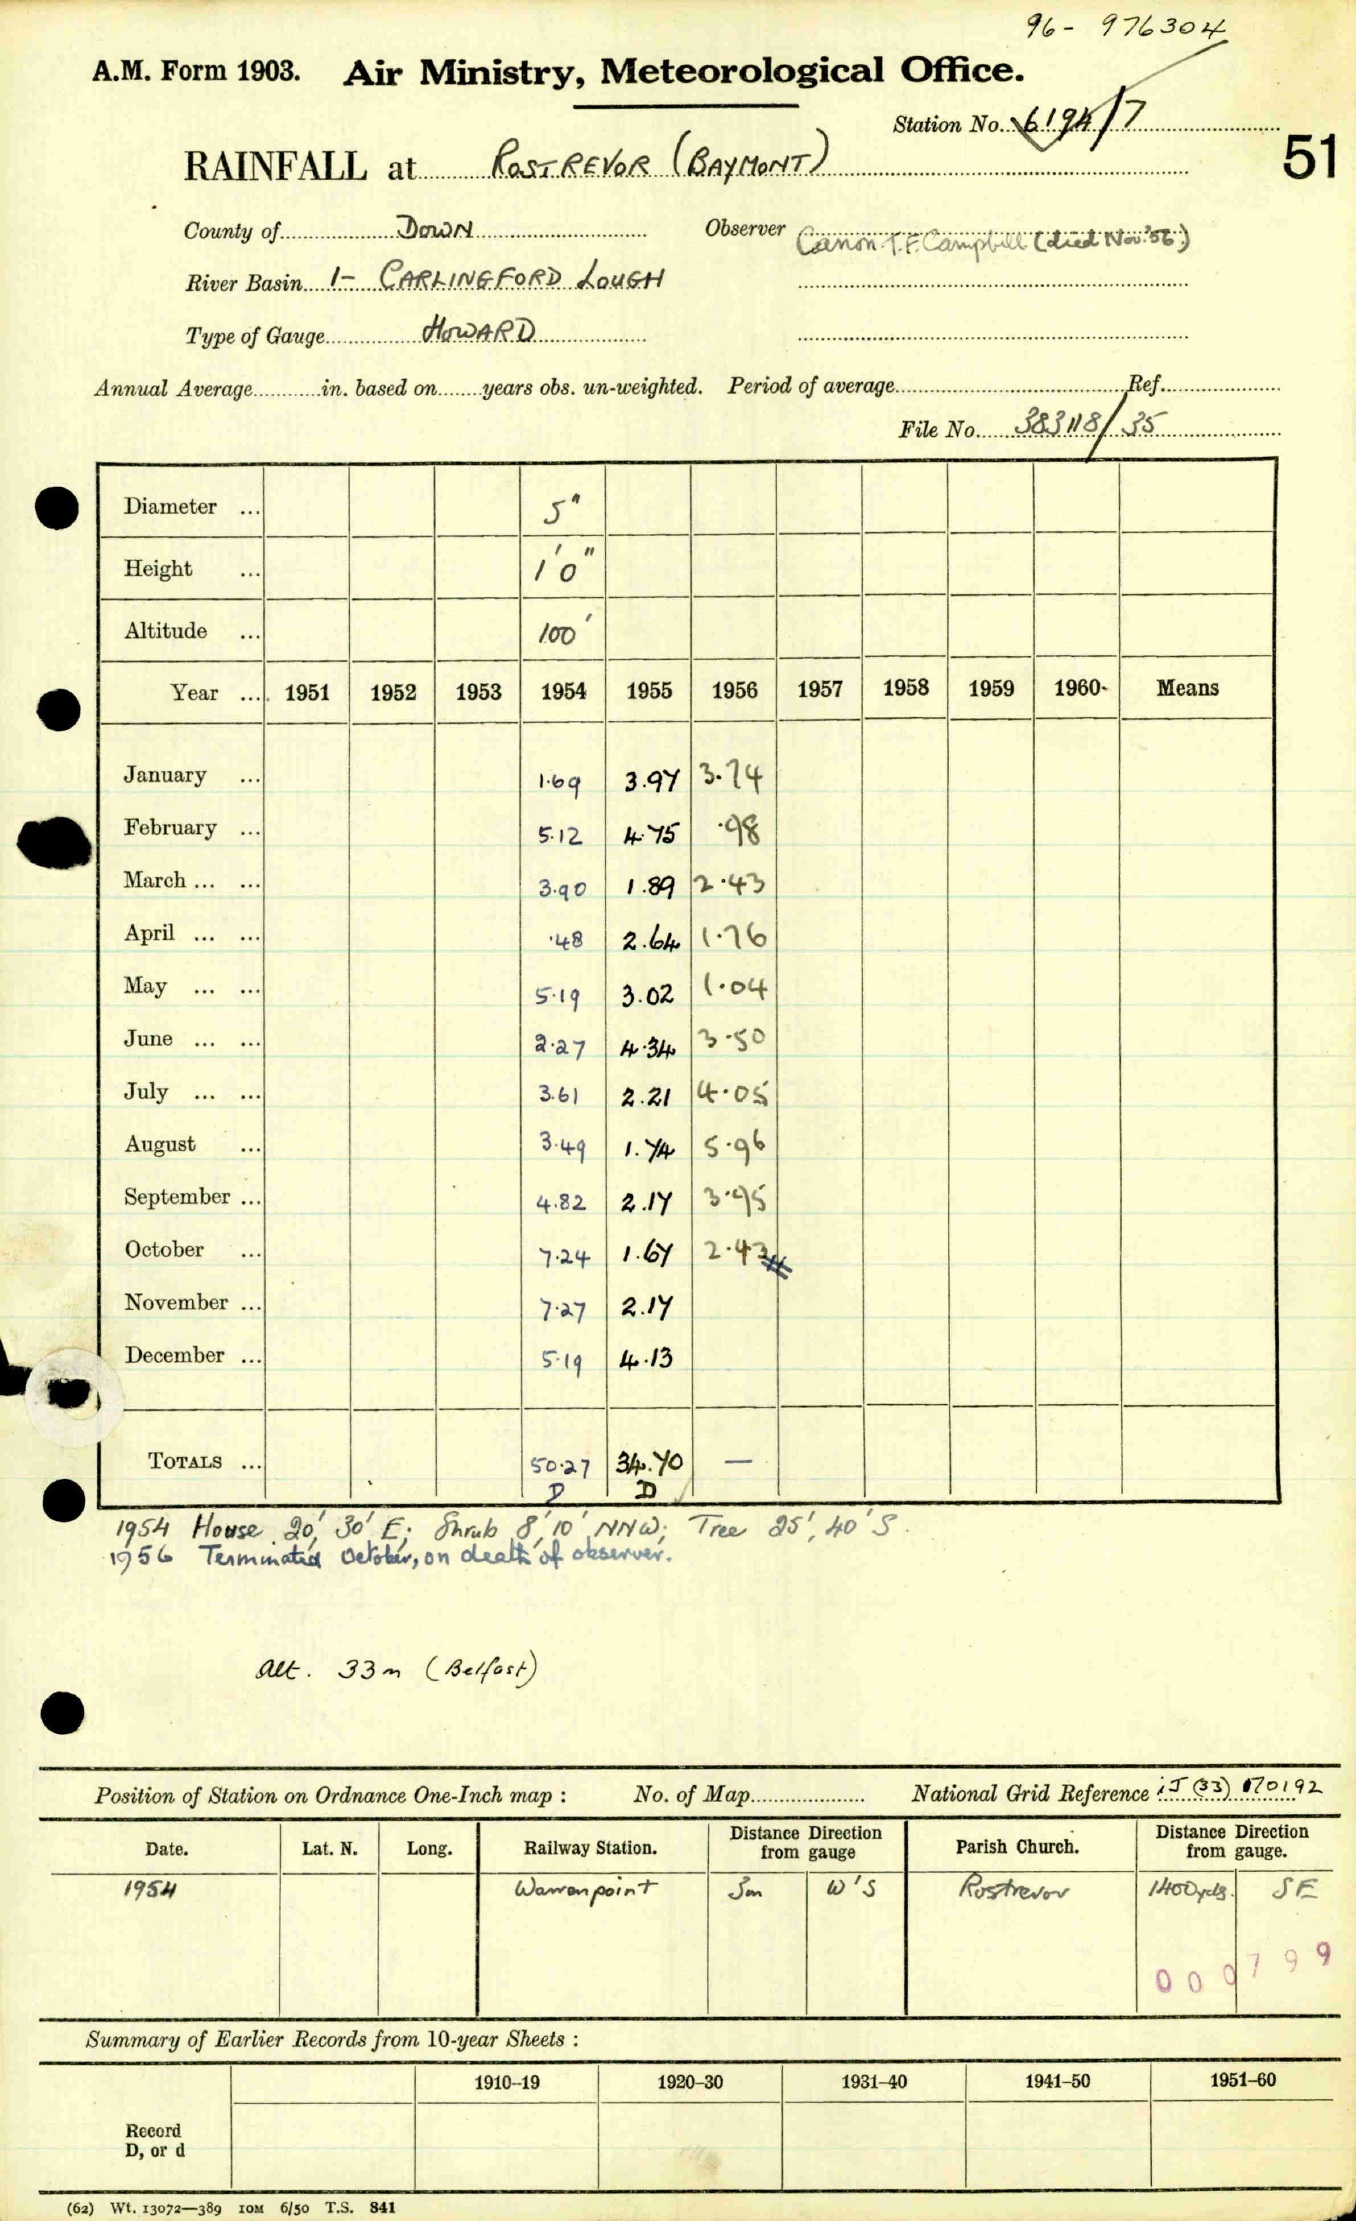 96- 976304
A.M. Form 1903. Air Ministry, Meteorological Office.
Station No. 6194/7
51
RAINFALL at ROSTREVOR (BAYMONT)
County of DOWN Observer Canon T.F. Campbell (died Nov. '56.)
River Basin 1- CARLINGFORD LOUGH
Type of Gauge HOWARD
Annual Average in. based on years obs. un-weighted. Period of average Ref.
File No. 383118/35
Diameter ... 5"
Height ... 1'0"
Altitude ... 100'
Year ... 1951 1952 1953 1954 1955 1956 1957 1958 1959 1960 Means
January ... 1.69 3.97 3.74
February ... 5.12 4.75 .98
March ... ... 3.90 1.89 2.43
April ... ... .48 2.64 1.76
May ... ... 5.19 3.02 1.04
June ... ... 2.27 4.34 3.50
July ... ... 3.61 2.21 4.05
August ... 3.49 1.74 5.96
September ... 4.82 2.17 3.95
October ... 7.24 1.67 2.43
November ... 7.27 2.17
December ... 5.19 4.13
TOTALS ... 50.27 34.70 —
D D
1954 House 20', 30' E; Shrub 8', 10' NNW; Tree 25', 40' S.
1956 Terminated October, on death of observer.
Alt. 33m (Belfast)
Position of Station on Ordnance One-Inch map : No. of Map National Grid Reference iJ (33) 170192
Date. Lat. N. Long. Railway Station. Distance Direction from gauge Parish Church. Distance Direction from gauge.
1954 Warrenpoint 3m W'S Rostrevor 1400yds. SE
000799
Summary of Earlier Records from 10-year Sheets :
1910-19 1920-30 1931-40 1941-50 1951-60
Record
D, or d
(62) Wt. 13072—389 10M 6/50 T.S. 841